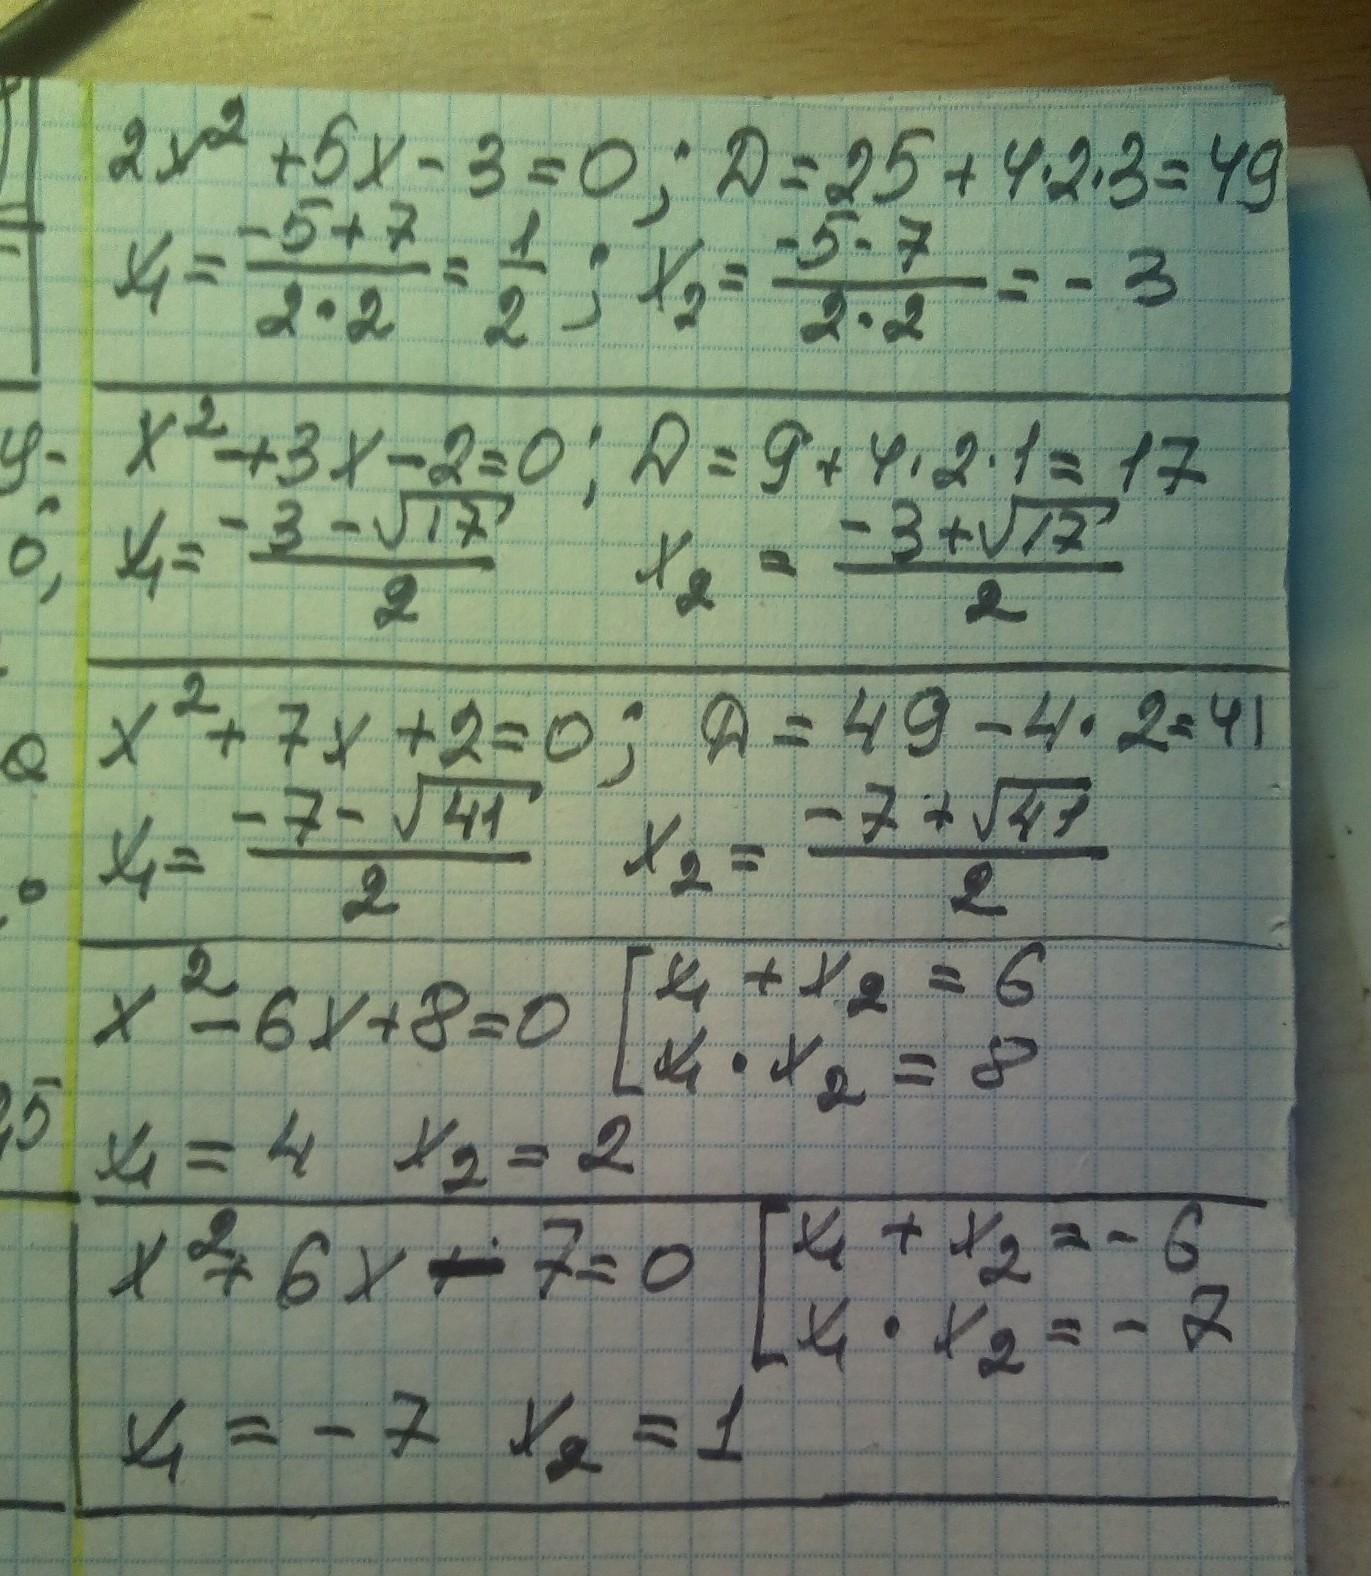 2x² + 5x - 3 = 0; D = 25 + 4·2·3 = 49
x₁ = (-5 + 7)/(2·2) = 1/2; x₂ = (-5 - 7)/(2·2) = - 3
x² + 3x - 2 = 0; D = 9 + 4·2·1 = 17
x₁ = (-3 - √17)/2 x₂ = (-3 + √17)/2
x² + 7x + 2 = 0; D = 49 - 4·2 = 41
x₁ = (-7 - √41)/2 x₂ = (-7 + √41)/2
x² - 6x + 8 = 0 [x₁ + x₂ = 6
x₁ · x₂ = 8
x₁ = 4 x₂ = 2
x² + 6x - 7 = 0 [x₁ + x₂ = - 6
x₁ · x₂ = - 7
x₁ = - 7 x₂ = 1